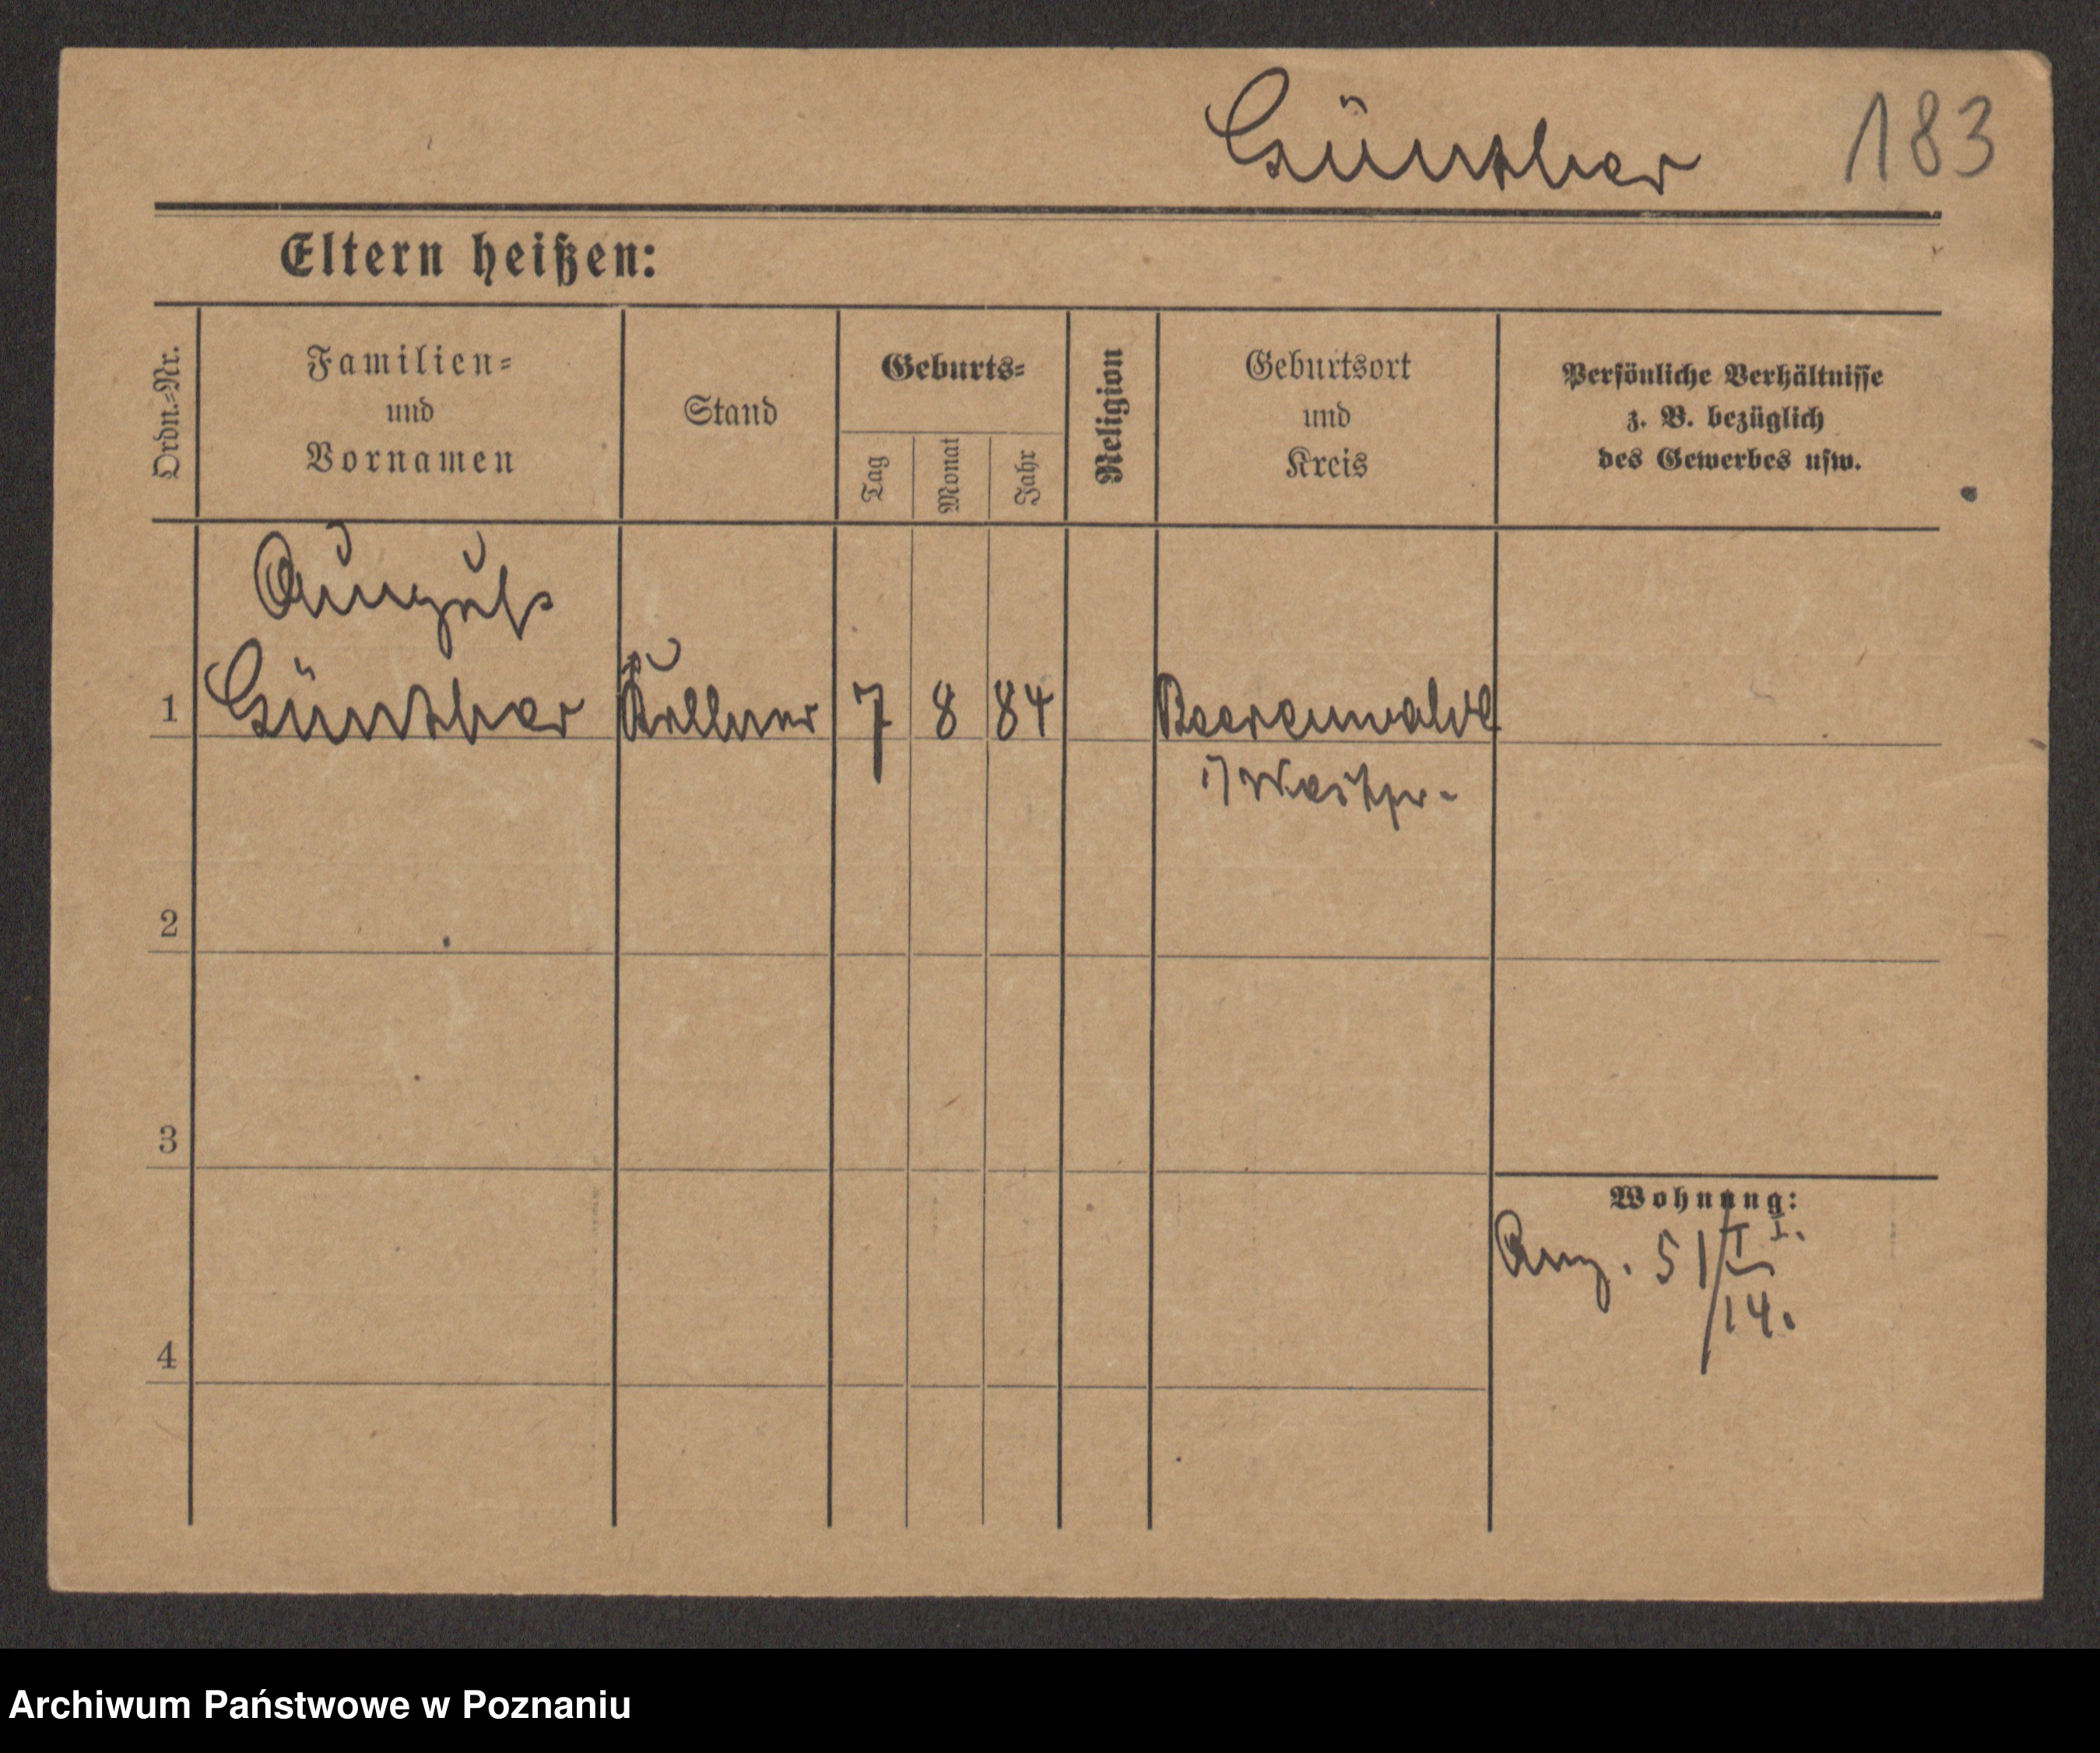 Günther 183
Eltern heißen:
Ordn.-Nr.
Familien-
und
Vornamen
Stand
Geburts-
Tag
Monat
Jahr
Religion
Geburtsort
und
Kreis
Persönliche Verhältnisse
z. B. bezüglich
des Gewerbes usw.
August
1 Günther Kellner 7 8 84 Baerenwalde
i/ Westpr.
2
3
Wohnung:
51
14.
4
Archiwum Państwowe w Poznaniu